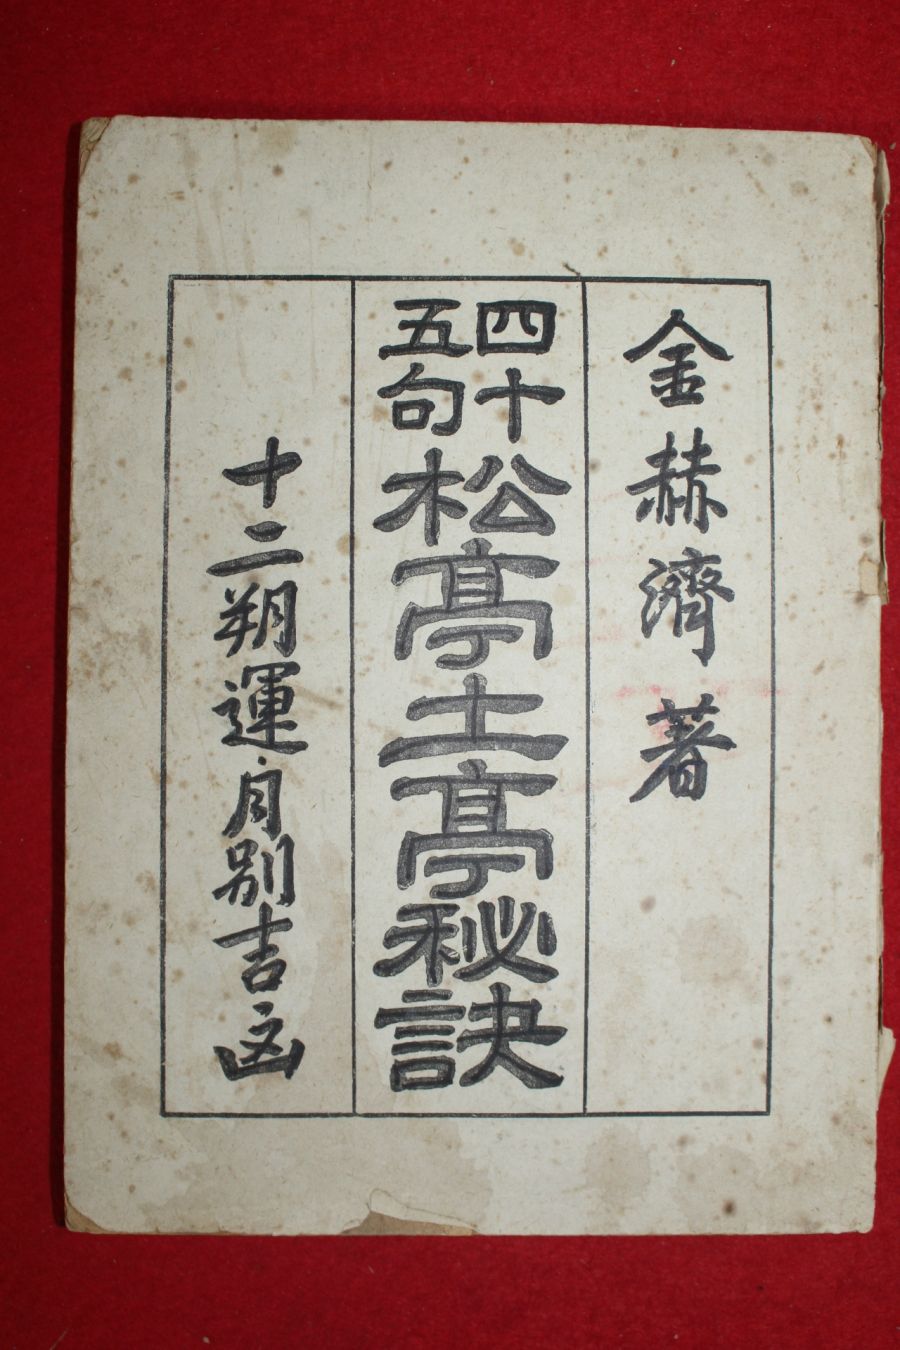 金赫濟著
四十五句松亭土亭秘訣
十二朔運月別吉凶